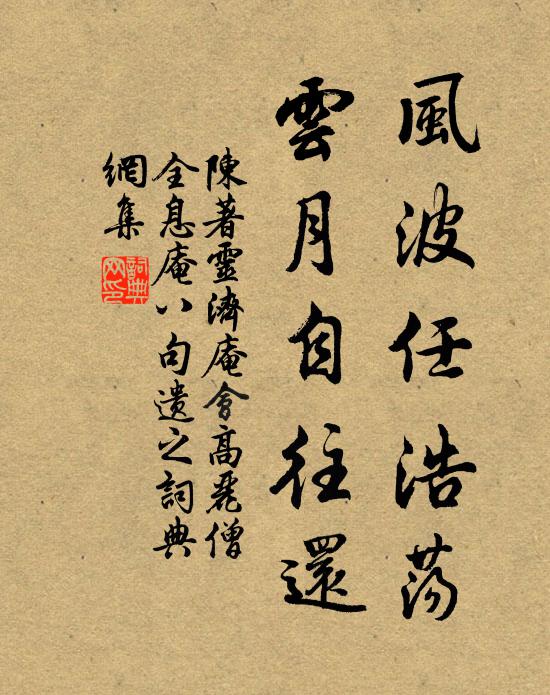 風波任浩蕩
雲月自往還
陳著靈濟庵會高麗僧
全息庵八句遺之詞典
網集
詞典
网印